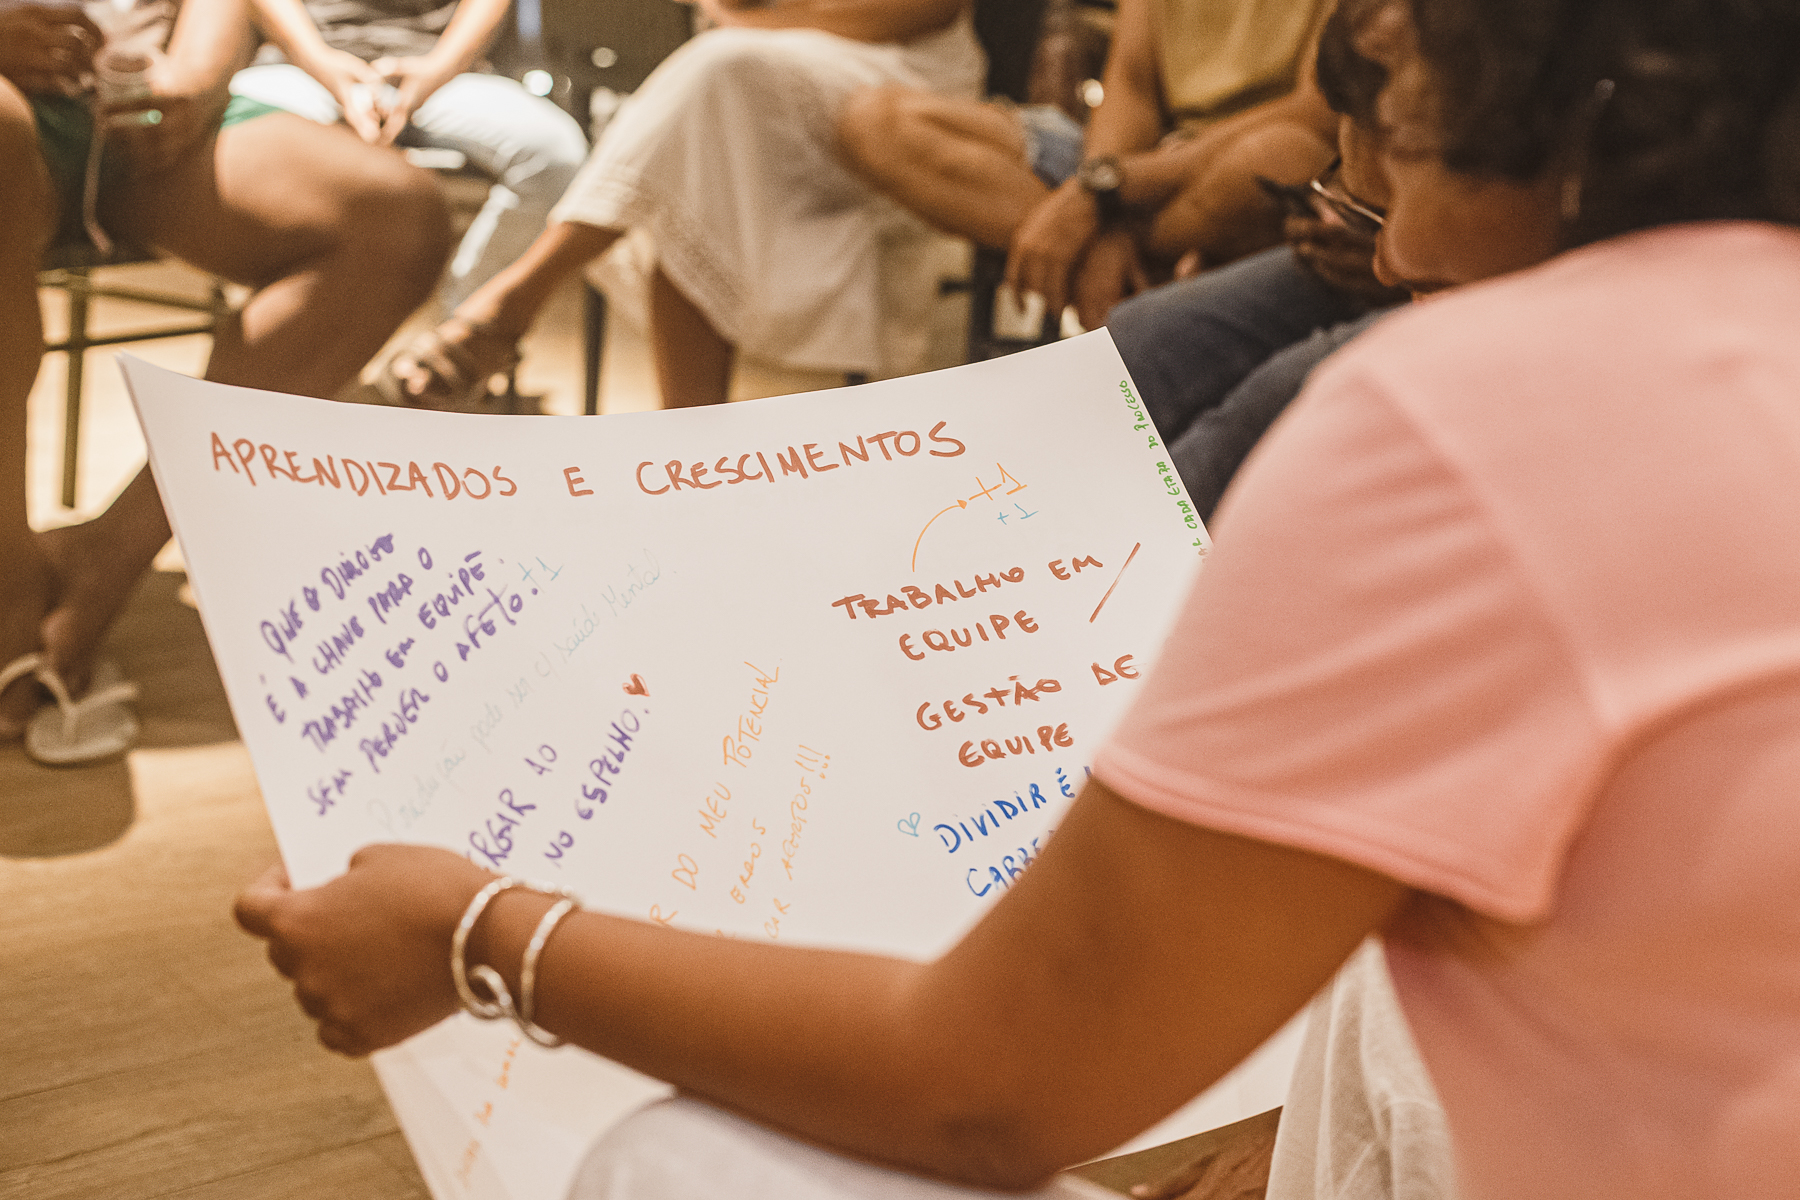 APRENDIZADOS E CRESCIMENTOS
QUE O DIÁLOGO
É A CHAVE PARA O
TRABALHO EM EQUIPE.
SEM PERDER O AFETO. +1
Produção pode ser c/ saúde Mental.
AO
NO ESPELHO.
DO MEU POTENCIAL
ERROS
ACERTOS!!!
+1
+1
TRABALHO EM
EQUIPE
GESTÃO DE
EQUIPE
DIVIDIR É
CADA ETAPA DO PROCESSO